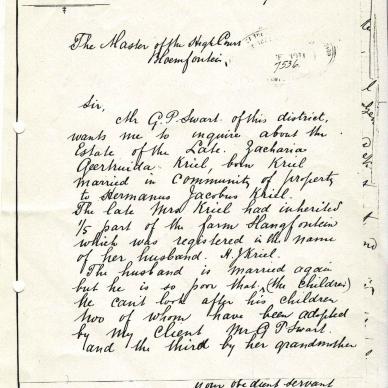 The Master of the High Court
Bloemfontein,
7536
Sir,
Mr G. P. Swart of this district,
wants me to inquire about the
Estate of the Late. Zacharia
Geertruida. Kriel, born Kriel
married in community of property
to Hermanus Jacobus Kriel.
The late Mrs Kriel had inherited
1/5 part of the farm Hangfontein
which was registered in the name
of her husband. H. J. Kriel.
The husband is married again
but he is so poor that (the children)
he can't look after his children
two of whom have been adopted
by my client Mr G P Swart.
and the third by her grandmother
your obedient servant